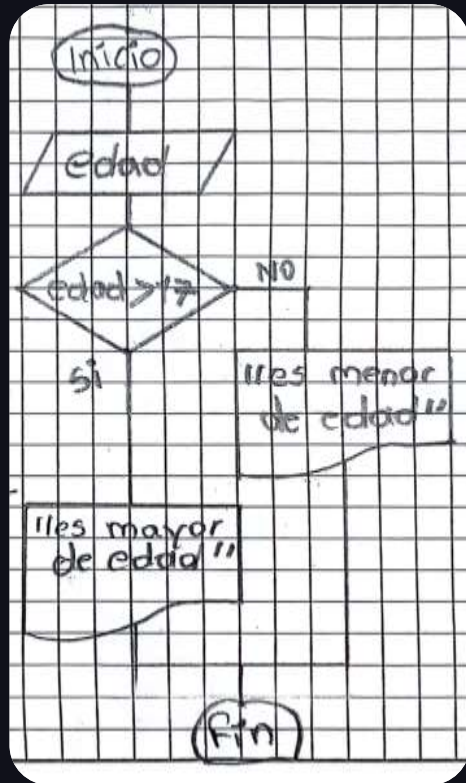 Inicio
edad
edad > 17
NO
Si
"es menor
de edad"
"es mayor
de edad"
Fin